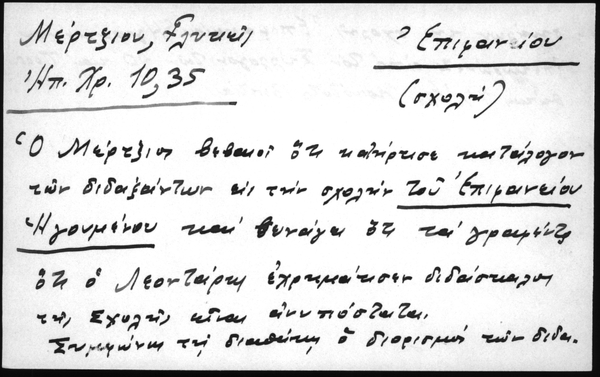 Μέρτζιου, Γλυκεῖς Ἐπιφανείου
Ἠπ. Χρ. 10,35 (σχολή)
Ὁ Μέρτζιος βεβαιοῖ ὅτι κατήρτισε κατάλογον
τῶν διδαξάντων εἰς τὴν σχολὴν τοῦ Ἐπιφανείου
Ἡγουμένου καὶ συνάγει ὅτι τὰ γραφέντα
ὅτι ὁ Λεοντάρης ἐχρημάτισεν διδάσκαλος
τῆς Σχολῆς εἶναι ἀνυπόστατα.
Συμφώνως τῇ διαθήκῃ ὁ διορισμὸς τῶν διδα.